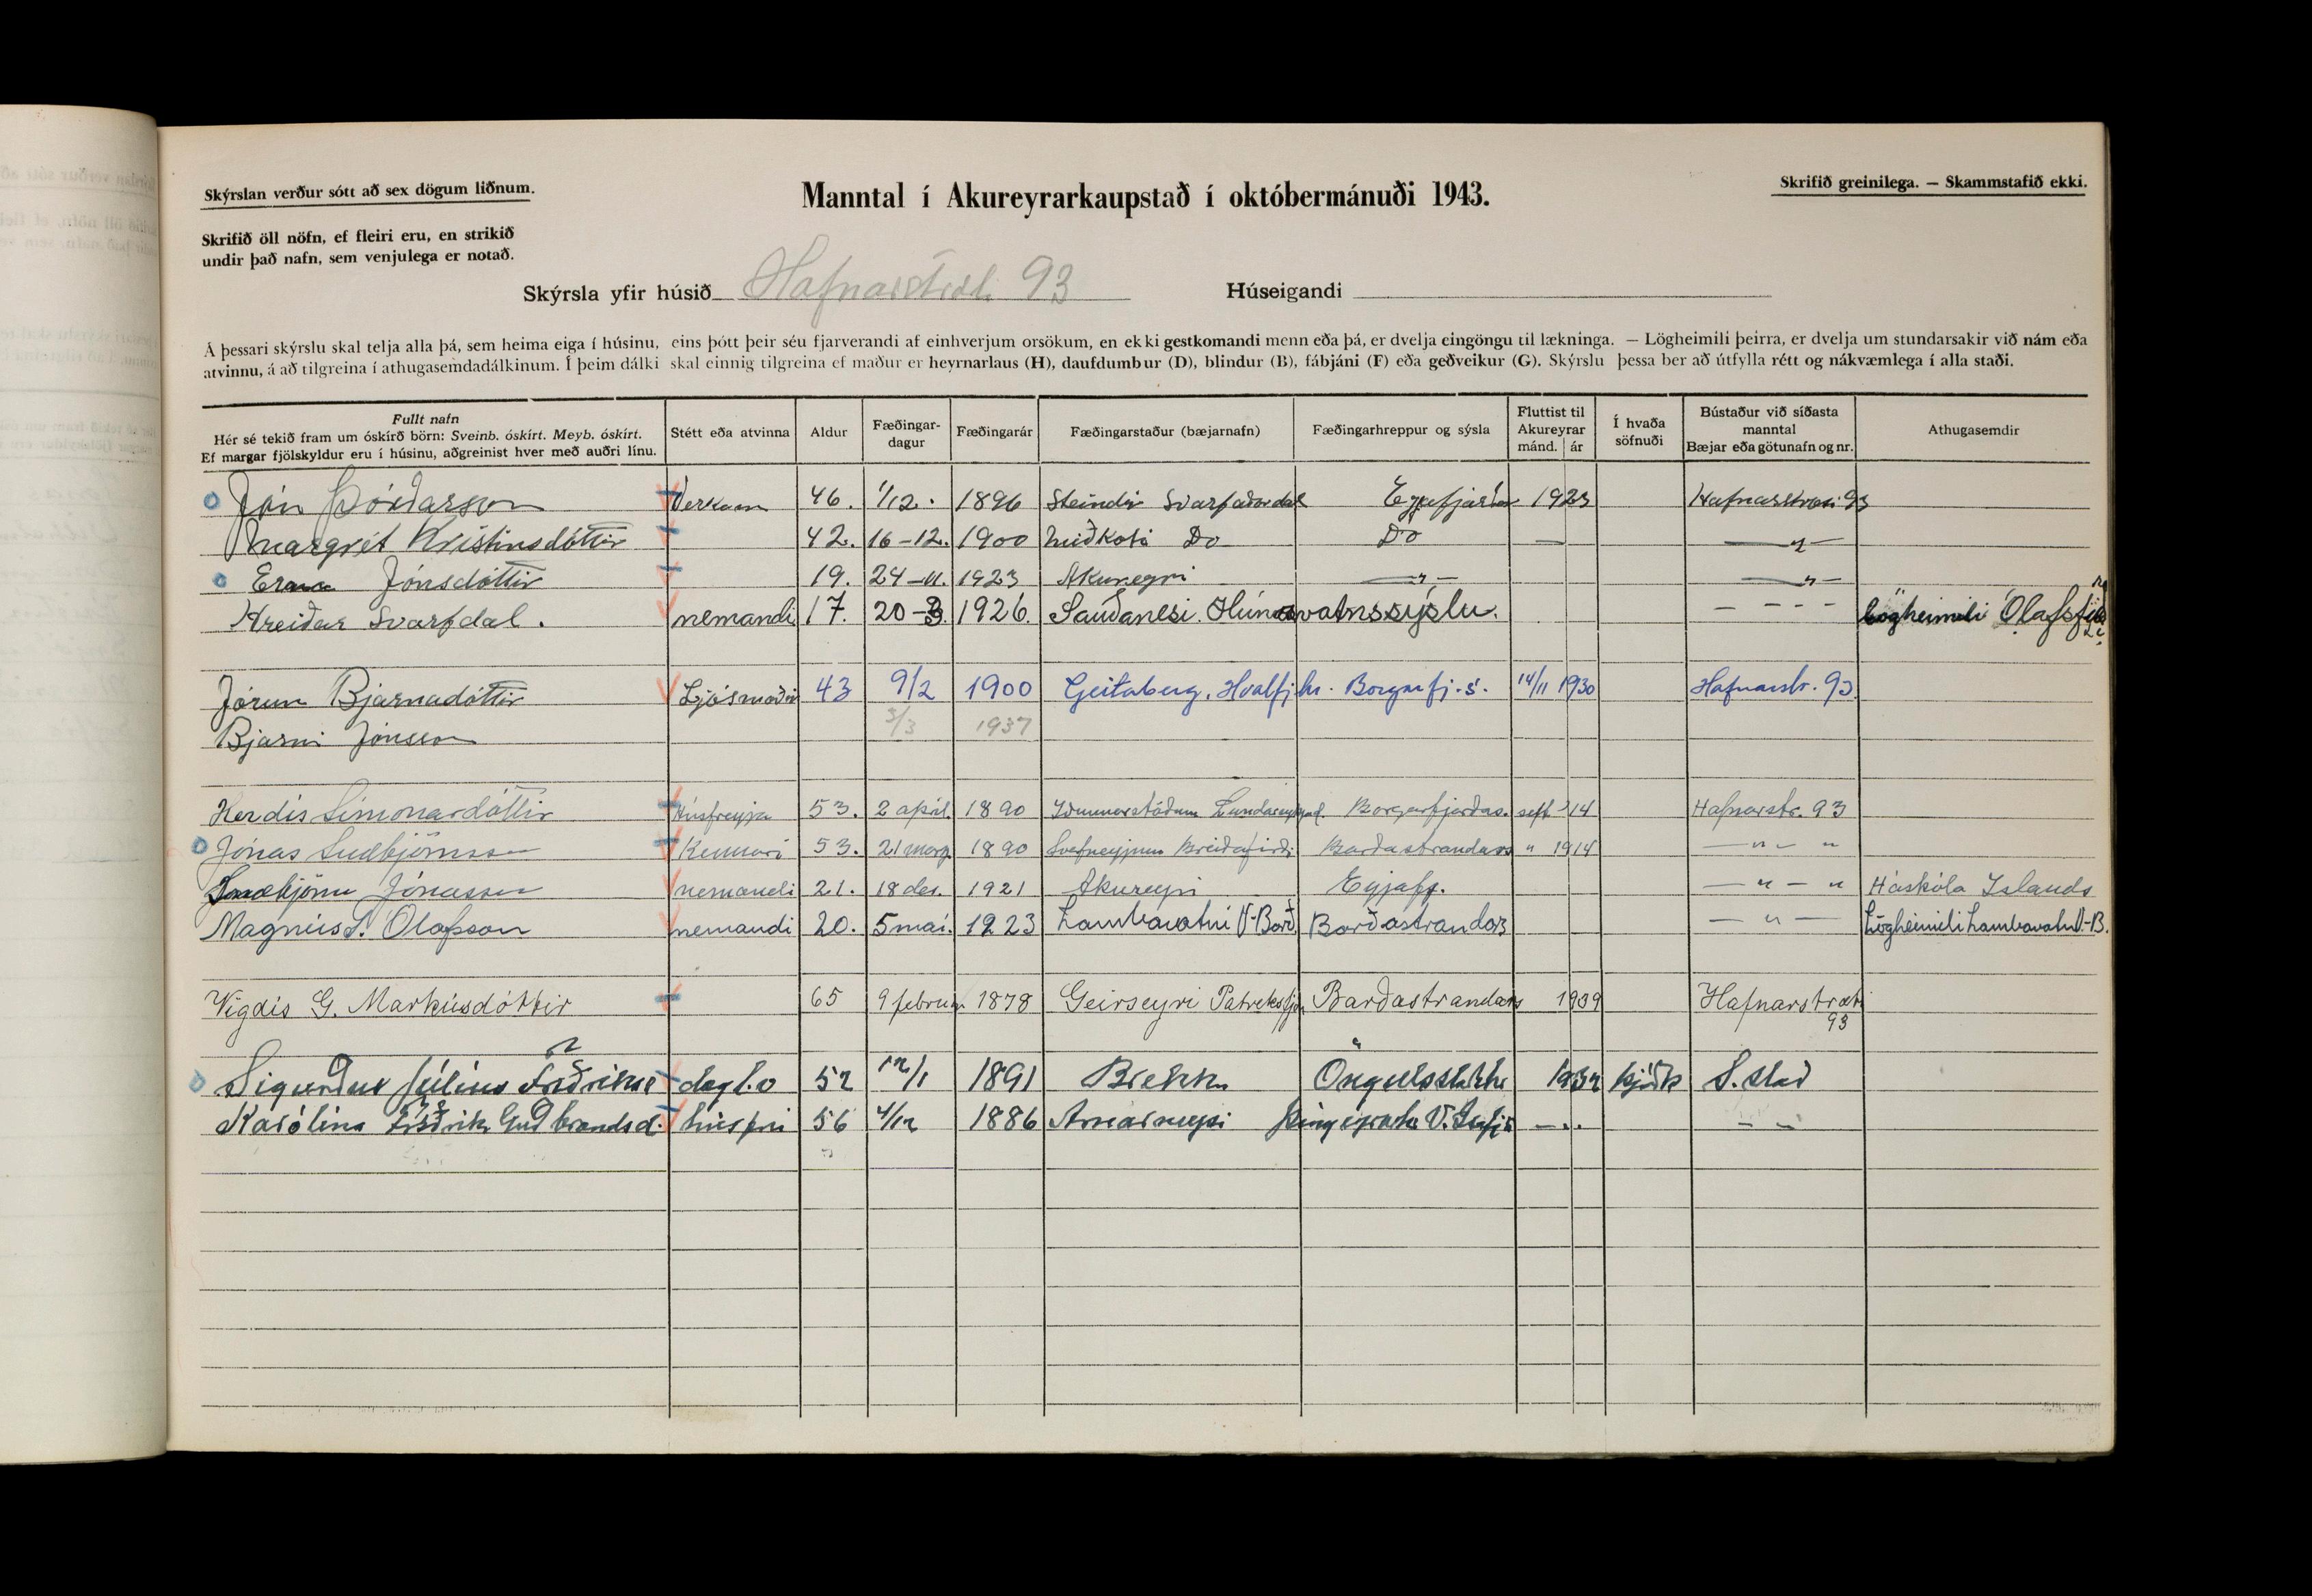 Skýrslan verður sótt að sex dögum liðnum.
Manntal í Akureyrarkaupstað í októbermánuði 1943.
Skrifið greinilega. — Skammstafið ekki.
Skrifið öll nöfn, ef fleiri eru, en strikið
undir það nafn, sem venjulega er notað.
Skýrsla yfir húsið Hafnarstræti 93 Húseigandi
Á þessari skýrslu skal telja alla þá, sem heima eiga í húsinu, eins þótt þeir séu fjarverandi af einhverjum orsökum, en ekki gestkomandi menn eða þá, er dvelja eingöngu til lækninga. — Lögheimili þeirra, er dvelja um stundarsakir við nám eða
atvinnu, á að tilgreina í athugasemdadálkinum. Í þeim dálki skal einnig tilgreina ef maður er heyrnarlaus (H), daufdumbur (D), blindur (B), fábjáni (F) eða geðveikur (G). Skýrslu þessa ber að útfylla rétt og nákvæmlega í alla staði.
Fullt nafn
Hér sé tekið fram um óskírð börn: Sveinb. óskírt. Meyb. óskírt.
Ef margar fjölskyldur eru í húsinu, aðgreinist hver með auðri línu.
Stétt eða atvinna
Aldur
Fæðingar-
dagur
Fæðingarár
Fæðingarstaður (bæjarnafn)
Fæðingarhreppur og sýsla
Fluttist til
Akureyrar
mánd. ár
Í hvaða
söfnuði
Bústaður við síðasta
manntal
Bæjar eða götunafn og nr.
Athugasemdir
Jón Þórðarson 46. 1/12. 1896 Steindir Svarfaðardal 1923 Hafnarstræti 93
Margrét Kristinsdóttir 42. 16-12. 1900 Miðkoti Do Do — —„—
Erna Jónsdóttir 19. 24-11. 1923 Akureyri —„— —„—
Hreiðar Svarfdal. nemandi 17. 20-3. 1926. Sauðanesi. Húnavatnssýslu. — — — — lögheimili
Jórun Bjarnadóttir Ljósmóðir 43 9/2 1900 Geitaberg, Hvalfj. hr. Borgarfj.s. 14/11 1930 Hafnarstr. 93
Bjarni Jónsson 3/3 1937
Herdís Símonardóttir Húsfreyja 53. 2 apríl. 1890 Borgarfjarðas. sept. '14 Hafnarstr. 93
Jónas Snæbjörnsson Kennari 53. 21 marz 1890 Svefneyjum Breiðafirði Barðastrandars „ 1914 —„— „
Snæbjörn Jónasson nemandi 21. 18 des. 1921 Akureyri Eyjafj. —„— „ Háskóla Íslands
Magnús S. Ólafsson nemandi 20. 5 maí. 1923 Lambavatni V-Barð. Barðastrandas —„— Lögheimili Lambavatn V.-B.
Vigdís G. Markúsdóttir 65 9 febrúar 1878 Geirseyri Patreksfj. Barðastrandars 1939 Hafnarstræti
93
Sigurður Júlíus Friðriksson dagl.v 52 12/1 1891 Brekku Öngulsstaðahr þjóðk S.stað
Karólína Friðrik Guðbrandsd. húsfrú 56 4/12 1886 Arnarneysi Þingeyrarh. V. Ísafj. —